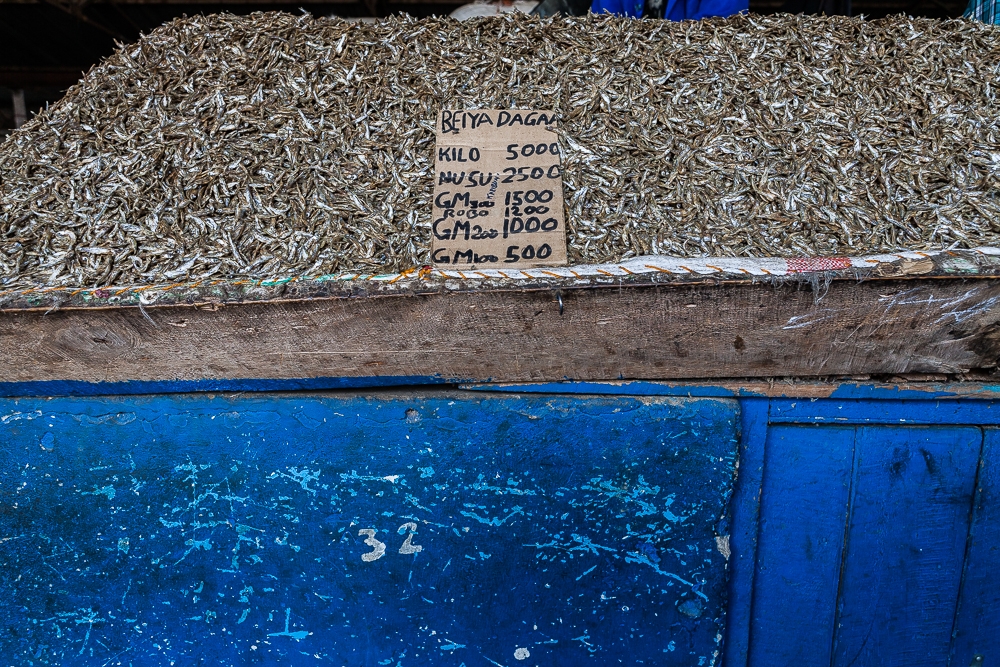 BEIYA DAGAA
KILO 5000
NUSU 2500
GM300 1500
ROBO 1200
GM200 1000
GM100 500
32